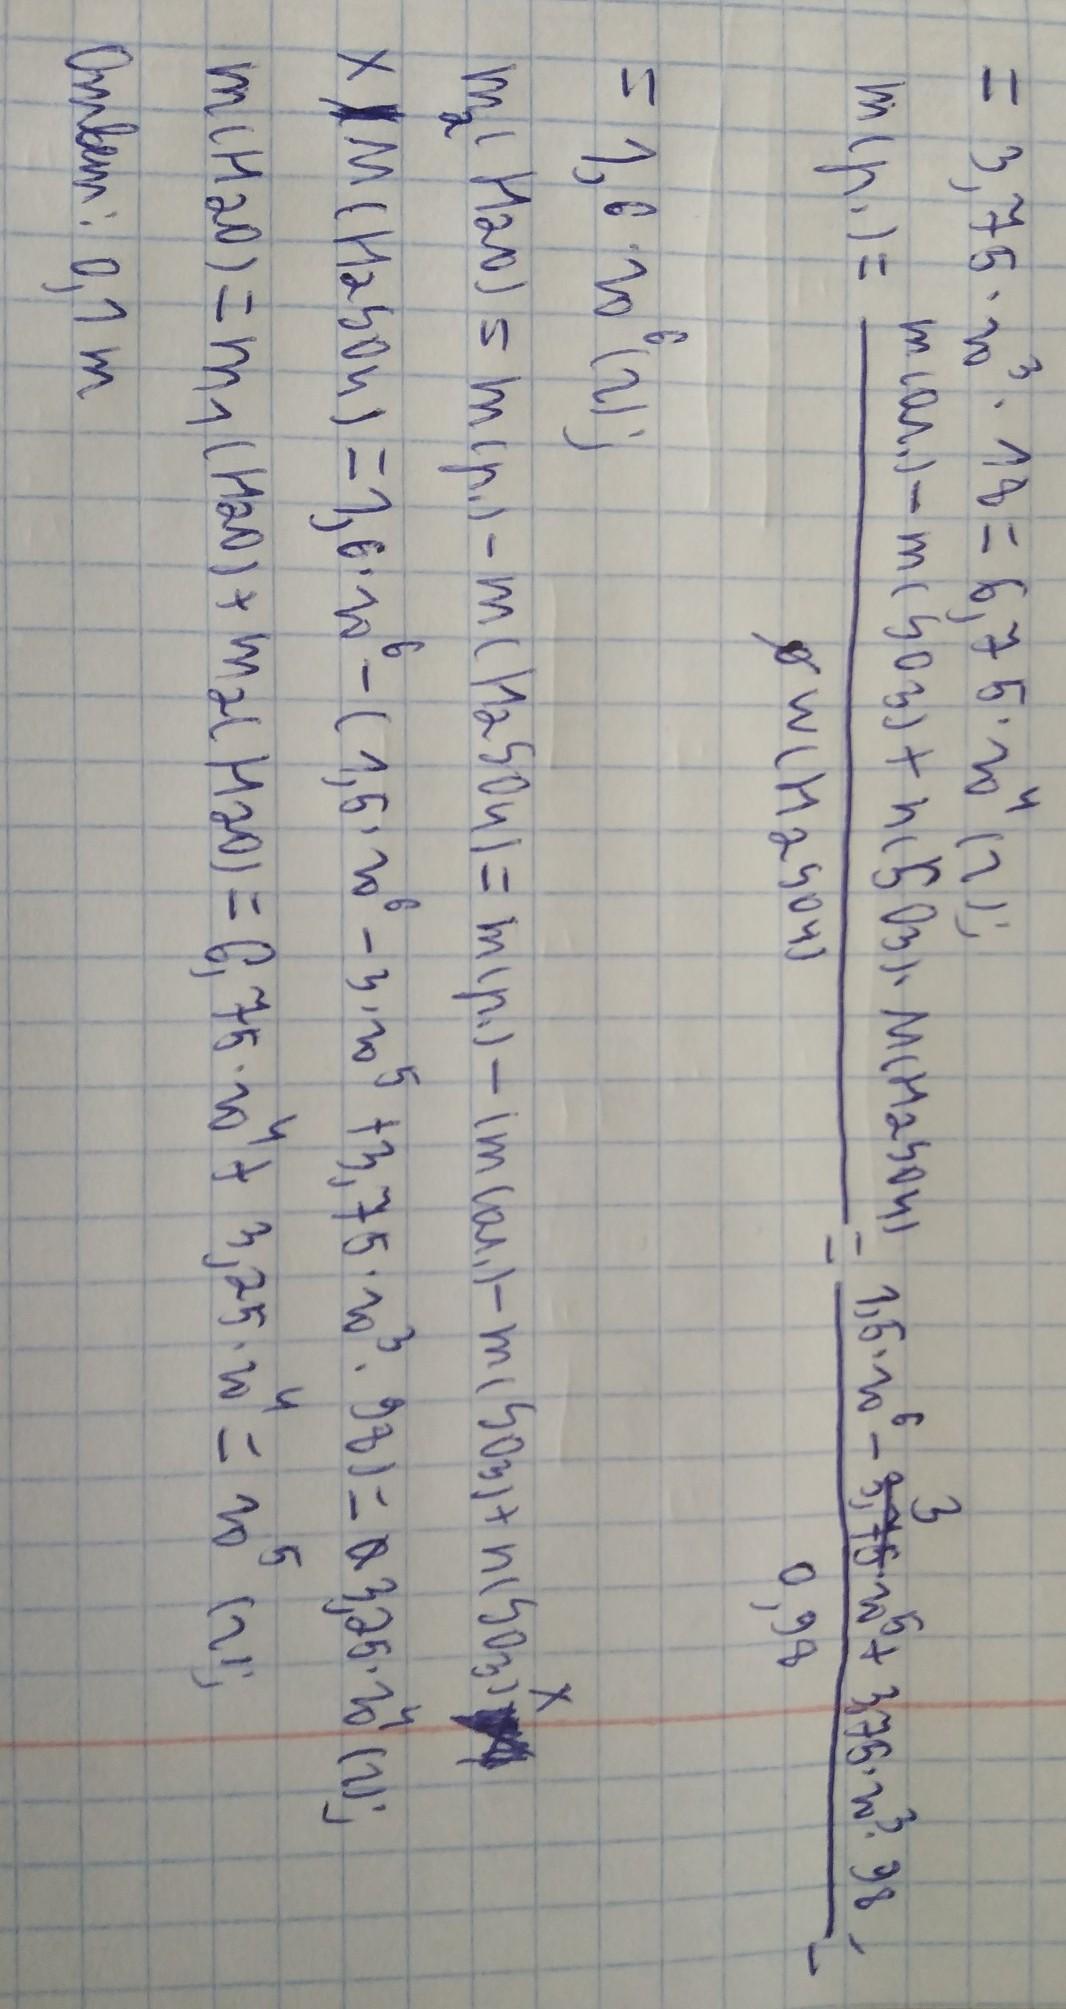 = 3,75·10³·18 = 6,75·10⁴ (г);
m(р.) = (m(ол.) - m(SO3) + n(SO3)·M(H2SO4)) / w(H2SO4) = (1,5·10⁶ - 3·10⁵ + 3,75·10³·98) / 0,98 =
= 1,6·10⁶ (г);
m₂(H2O) = m(р.) - m(H2SO4) = m(р.) - (m(ол.) - m(SO3) + n(SO3) ×
× M(H2SO4) = 1,6·10⁶ - (1,5·10⁶ - 3·10⁵ + 3,75·10³·98) = 3,25·10⁴ (г);
m(H2O) = m1(H2O) + m2(H2O) = 6,75·10⁴ + 3,25·10⁴ = 10⁵ (г);
Ответ: 0,1 т